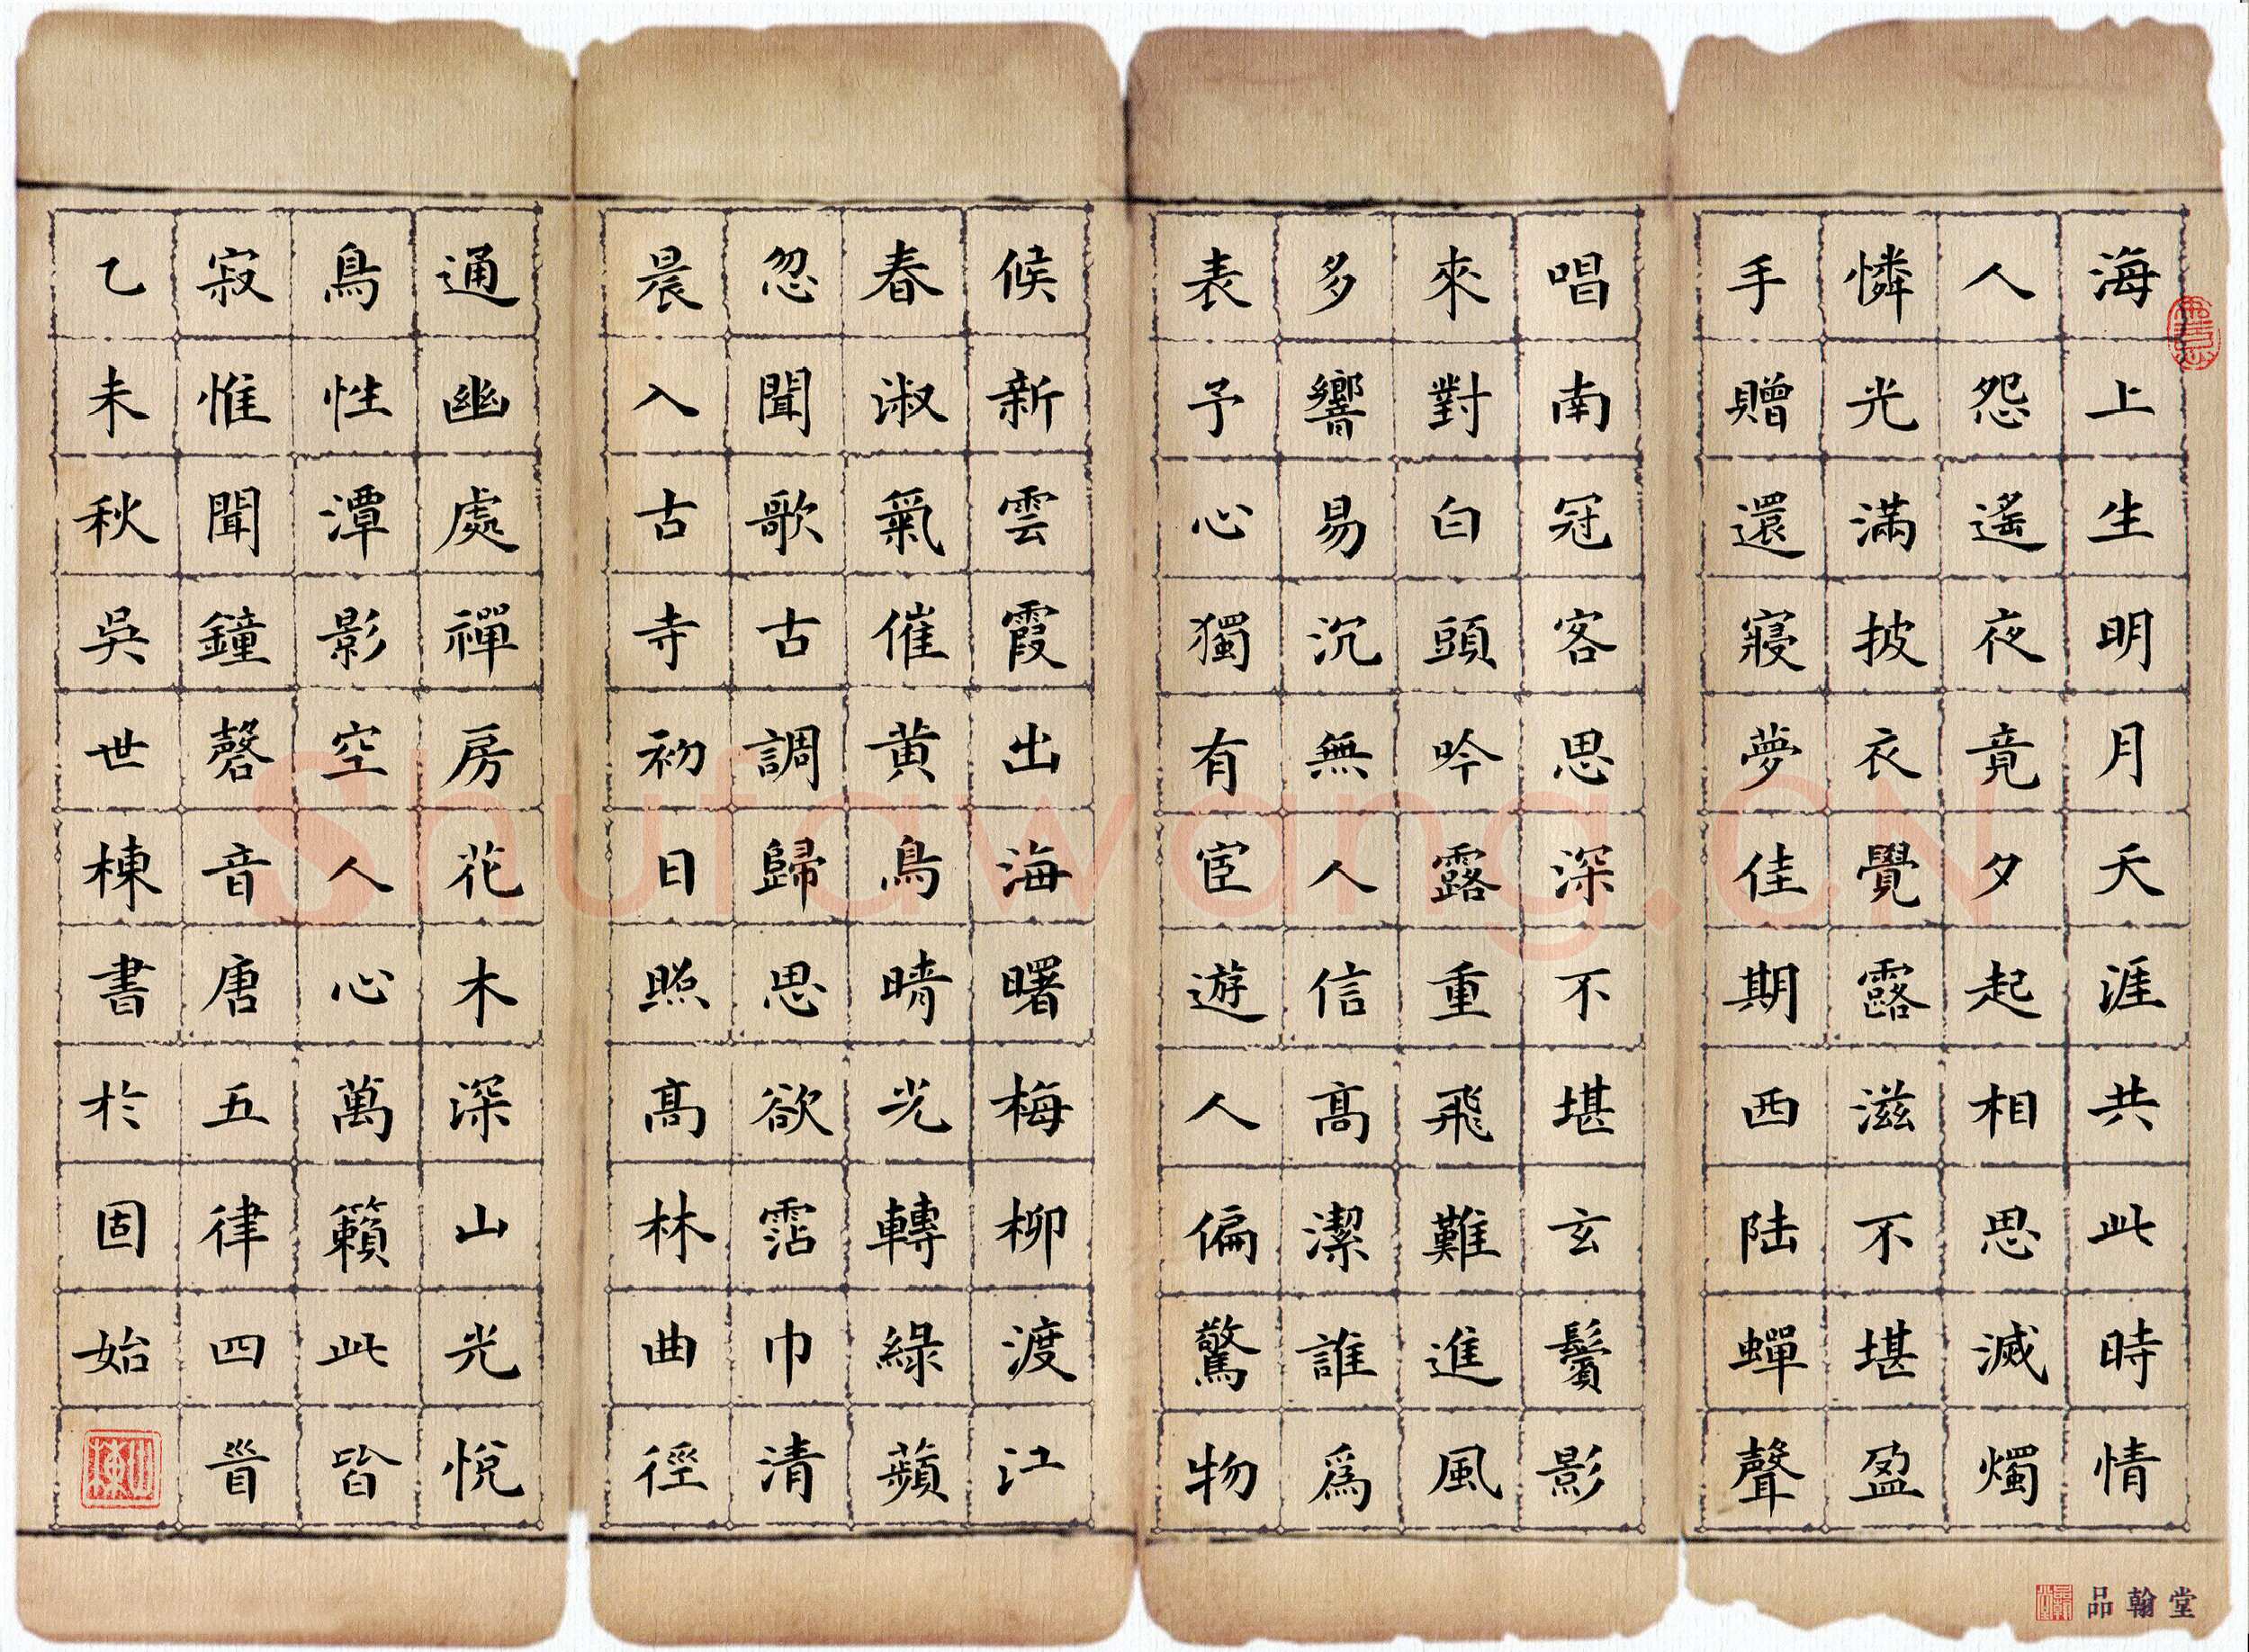 海上生明月天涯共此時情
人怨遙夜竟夕起相思滅燭
憐光滿披衣覺露滋不堪盈
手贈還寢夢佳期西陆蟬聲
唱南冠客思深不堪玄鬢影
來對白頭吟露重飛難進風
多響易沉無人信高潔誰為
表予心獨有宦遊人偏驚物
候新雲霞出海曙梅柳渡江
春淑氣催黄鳥晴光轉綠蘋
忽聞歌古調歸思欲霑巾清
晨入古寺初日照高林曲徑
通幽處禪房花木深山光悅
鳥性潭影空人心萬籟此皆
寂惟聞鐘磬音唐五律四首
乙未秋吳世棟書於固始
品翰堂
Shufawang.CN